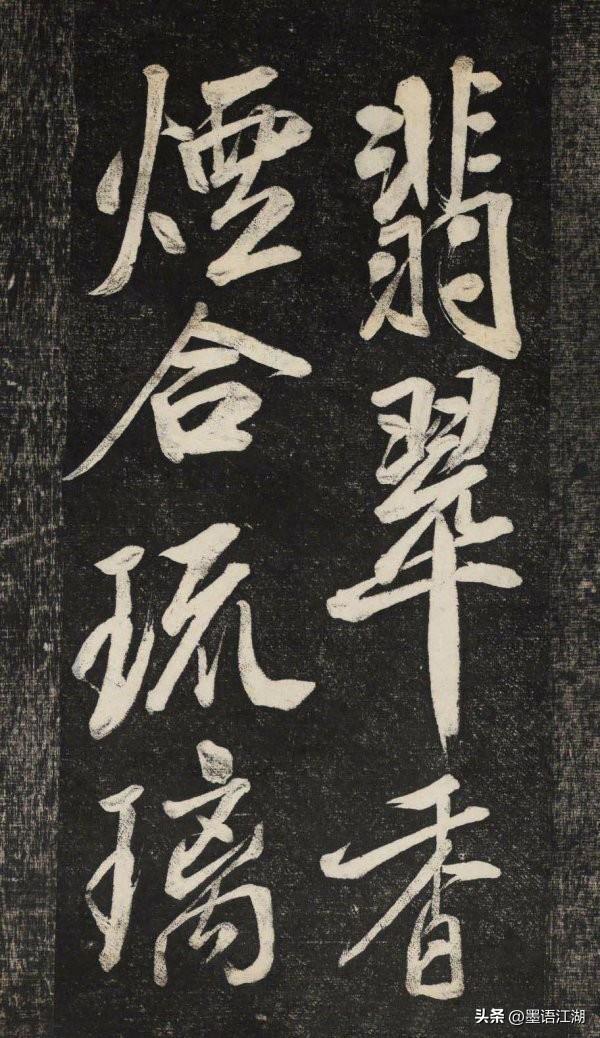 翡翠香
煙合琉璃
头条 @墨语江湖